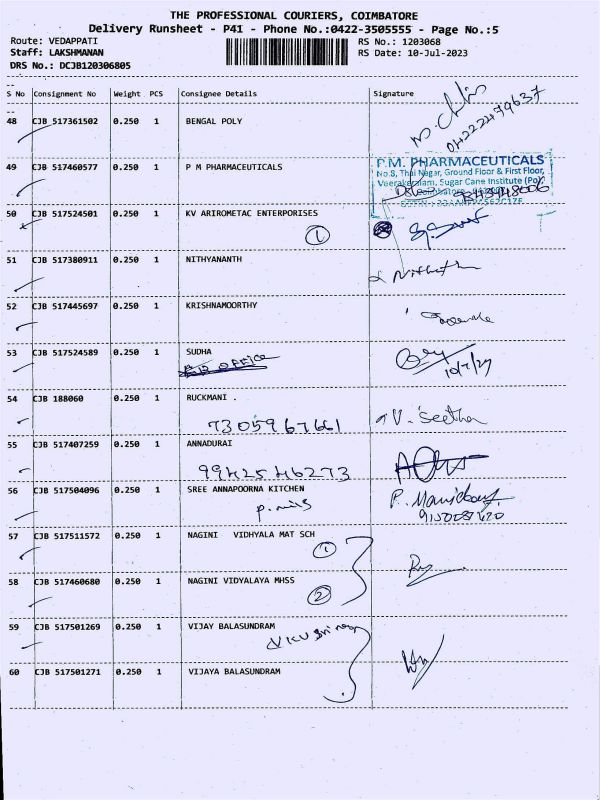 THE PROFESSIONAL COURIERS, COIMBATORE
Delivery Runsheet - P41 - Phone No.:0422-3505555 - Page No.:5
Route: VEDAPPATI
RS No.: 1203068
Staff: LAKSHMANAN
RS Date: 10-Jul-2023
DRS No.: DCJB120306805
S No Consignment No Weight PCS Consignee Details Signature
48 CJB 517361502 0.250 1 BENGAL POLY
49 CJB 517460577 0.250 1 P M PHARMACEUTICALS
P.M. PHARMACEUTICALS
No.8, Thai Nagar, Ground Floor & First Floor,
Veerakeralam, Sugar Cane Institute (Po),
50 CJB 517524501 0.250 1 KV ARIROMETAC ENTERPORISES
1
51 CJB 517380911 0.250 1 NITHYANANTH
52 CJB 517445697 0.250 1 KRISHNAMOORTHY
53 CJB 517524589 0.250 1 SUDHA
54 CJB 188060 0.250 1 RUCKMANI .
7305967661
V. Seetha
55 CJB 517407259 0.250 1 ANNADURAI
9942546273
56 CJB 517504096 0.250 1 SREE ANNAPOORNA KITCHEN
57 CJB 517511572 0.250 1 NAGINI VIDHYALA MAT SCH
1
58 CJB 517460680 0.250 1 NAGINI VIDYALAYA MHSS
2
59 CJB 517501269 0.250 1 VIJAY BALASUNDRAM
60 CJB 517501271 0.250 1 VIJAYA BALASUNDRAM